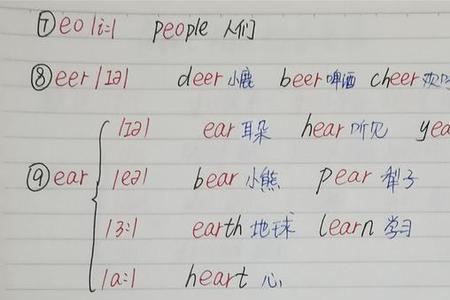 ⑦eo |i:| people 人们
⑧eer |ɪə| deer 小鹿 beer 啤酒 cheer
|ɪə| ear 耳朵 hear 听见
⑨ear |eə| bear 小熊 pear 犁子
|ɜ:| earth 地球 learn 学习
|a:| heart 心